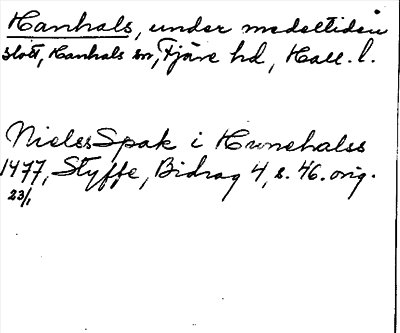 Hanhals, under medeltiden
slott, Hanhals sn, Fjäre hd, Hall. l.
Niels Spak i Hwnehalss
1477, Styffe, Bidrag 4, s. 46. orig.
23/1